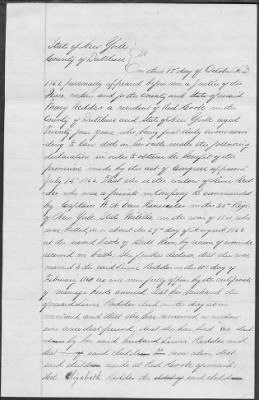 State of New York
County of Dutchess } SS
On this 18 day of October A.D.
1862, personally appeared before me a Justice of the
Peace within and for the County and State aforesaid
Mary Redder a resident of Red Hook in the
County of Dutchess and State of New York aged
Twenty four years who being first duly sworn accor-
ding to law doth on her oath make the following
declaration in order to obtain the benefit of the
provision made by the act of Congress approved
July 14th 1862. That she is the widow of
who was a private in Company commanded
by Captain in the 20th Regt
of New York State Militia in the war of 1861 who
was killed on or about the 29th day of August 1862
at the second battle of Bull Run by reason of wounds
received in battle. She further declares that she was
married to the said Redder on the day of
February
of marriage hereto annexed That her husband the
aforesaid Redder died on the day above
mentioned and that she has remained a widow
ever since that period, that she has had one child
by her said husband Redder and
that said child is now alive that
said child at Red Hook aforesaid.
that Elizabeth Redder the said child